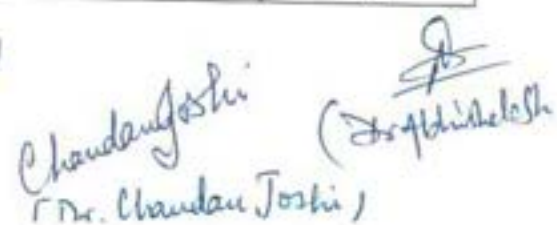 Chandan Joshi
(Dr. Chandan Joshi)
(Dr Abhishek